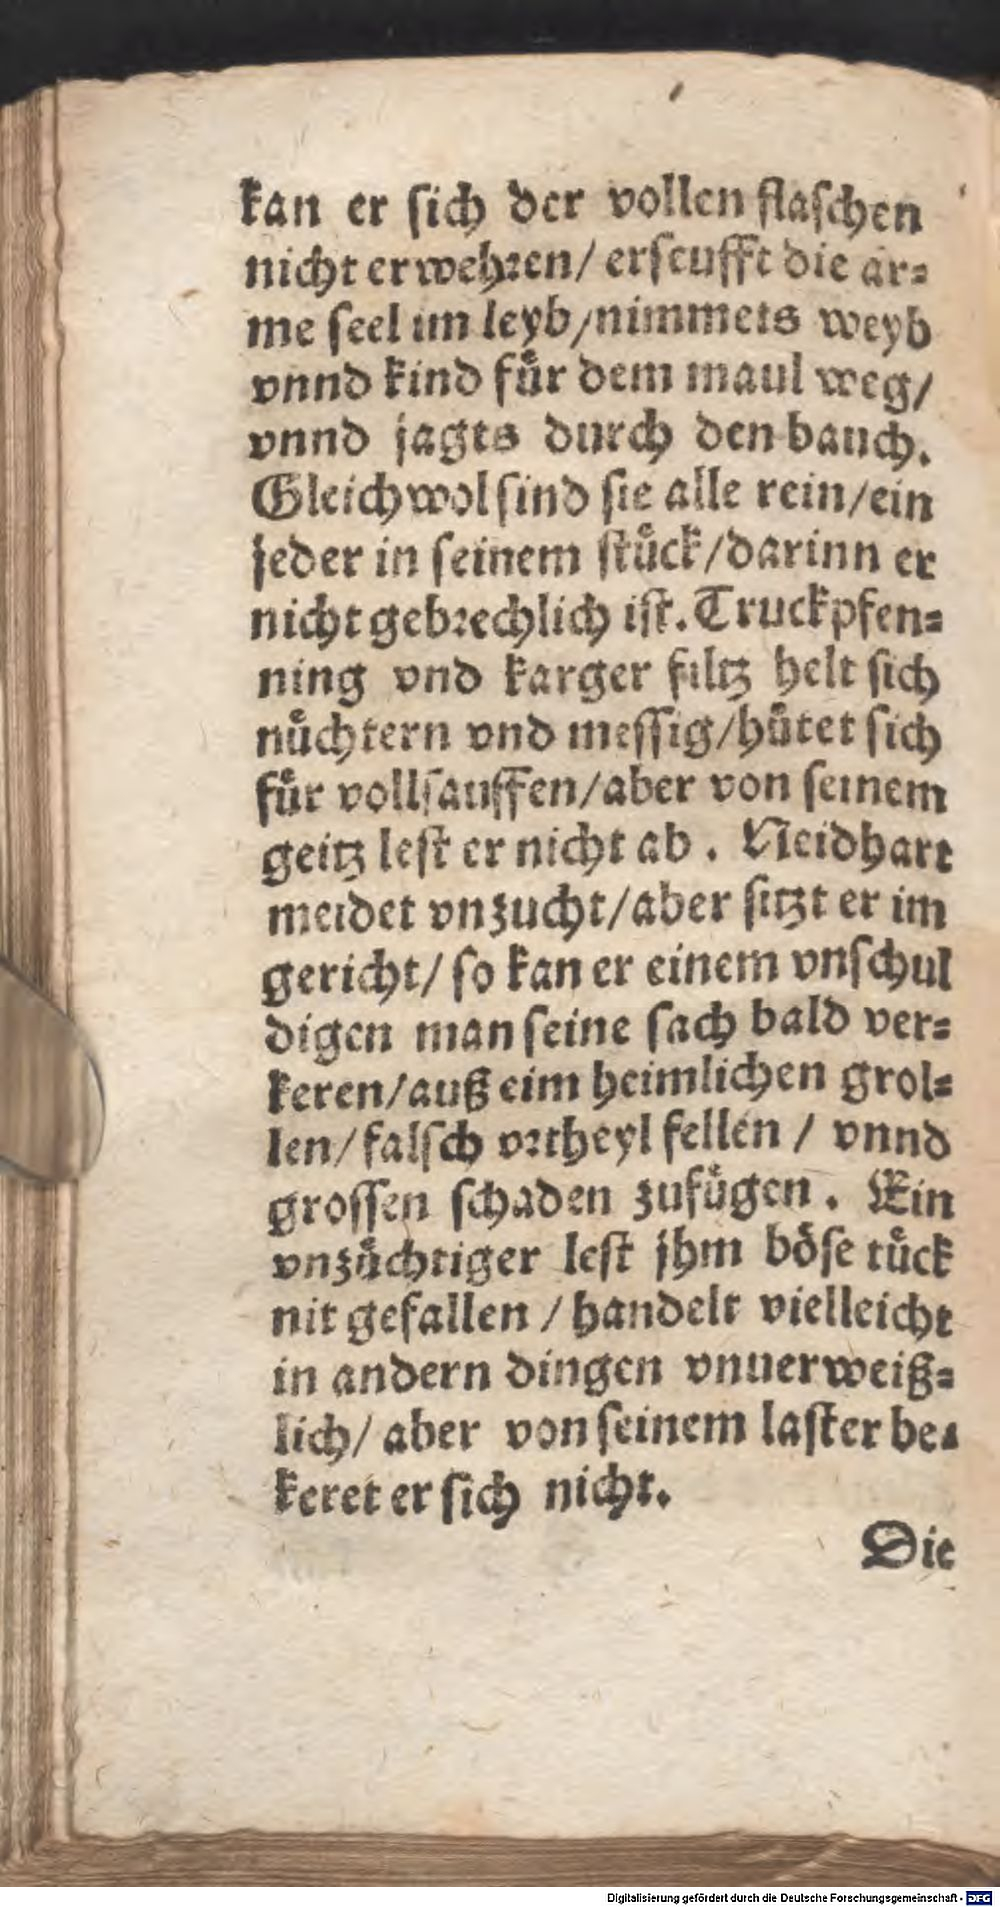 kan er ſich der vollen flaſchen
nicht erwehꝛen/ erſeufft die ar⸗
me ſeel im leyb/nimmets weyb
vnnd kind fuͤr dem maul weg/
vnnd jagts durch den bauch.
Gleichwol ſind ſie alle rein/ein
jeder in ſeinem ſtuͤck/darinn er
nicht gebꝛechlich iſt. Truckpfen⸗
ning vnd karger filtz helt ſich
nuͤchtern vnd meſſig/huͤtet ſich
fuͤr vollſauffen/aber von ſeinem
geitz leſt er nicht ab. Neidhart
meidet vnzucht/aber ſitzt er im
gericht/ ſo kan er einem vnſchul
digen man ſeine ſach bald ver⸗
keren/auß eim heimlichen grol⸗
len/falſch vꝛtheyl fellen / vnnd
groſſen ſchaden zufuͤgen. Ein
vnzuͤchtiger leſt jhm boͤſe tuͤck
nit gefallen / handelt vielleicht
in andern dingen vnuerweiß⸗
lich/ aber von ſeinem laſter be⸗
keret er ſich nicht.
Die
Digitalisierung gefördert durch die Deutsche Forschungsgemeinschaft - DFG